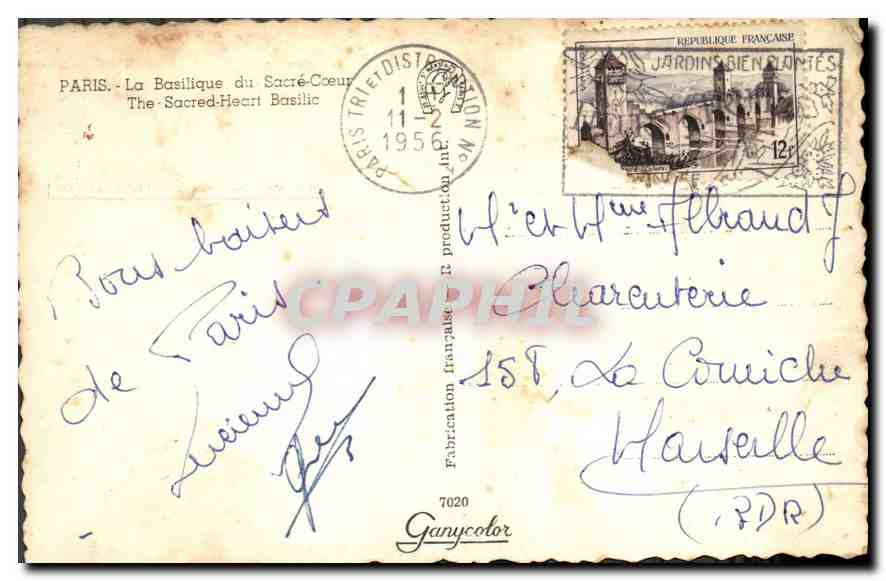 PARIS. - La Basilique du Sacré-Cœur
The Sacred-Heart Basilic
PARIS TRI ET DISTRIBUTION No
11-2
1956
REPUBLIQUE FRANÇAISE
JARDINS BIEN PLANTÉS
12f
Bons baisers
de Paris
Lucienne
Mr et Mme Albrand J
Charcuterie
158, La Corniche
Marseille
(BDR)
Fabrication française - R production int.
CPAPHIL
7020
Ganycolor